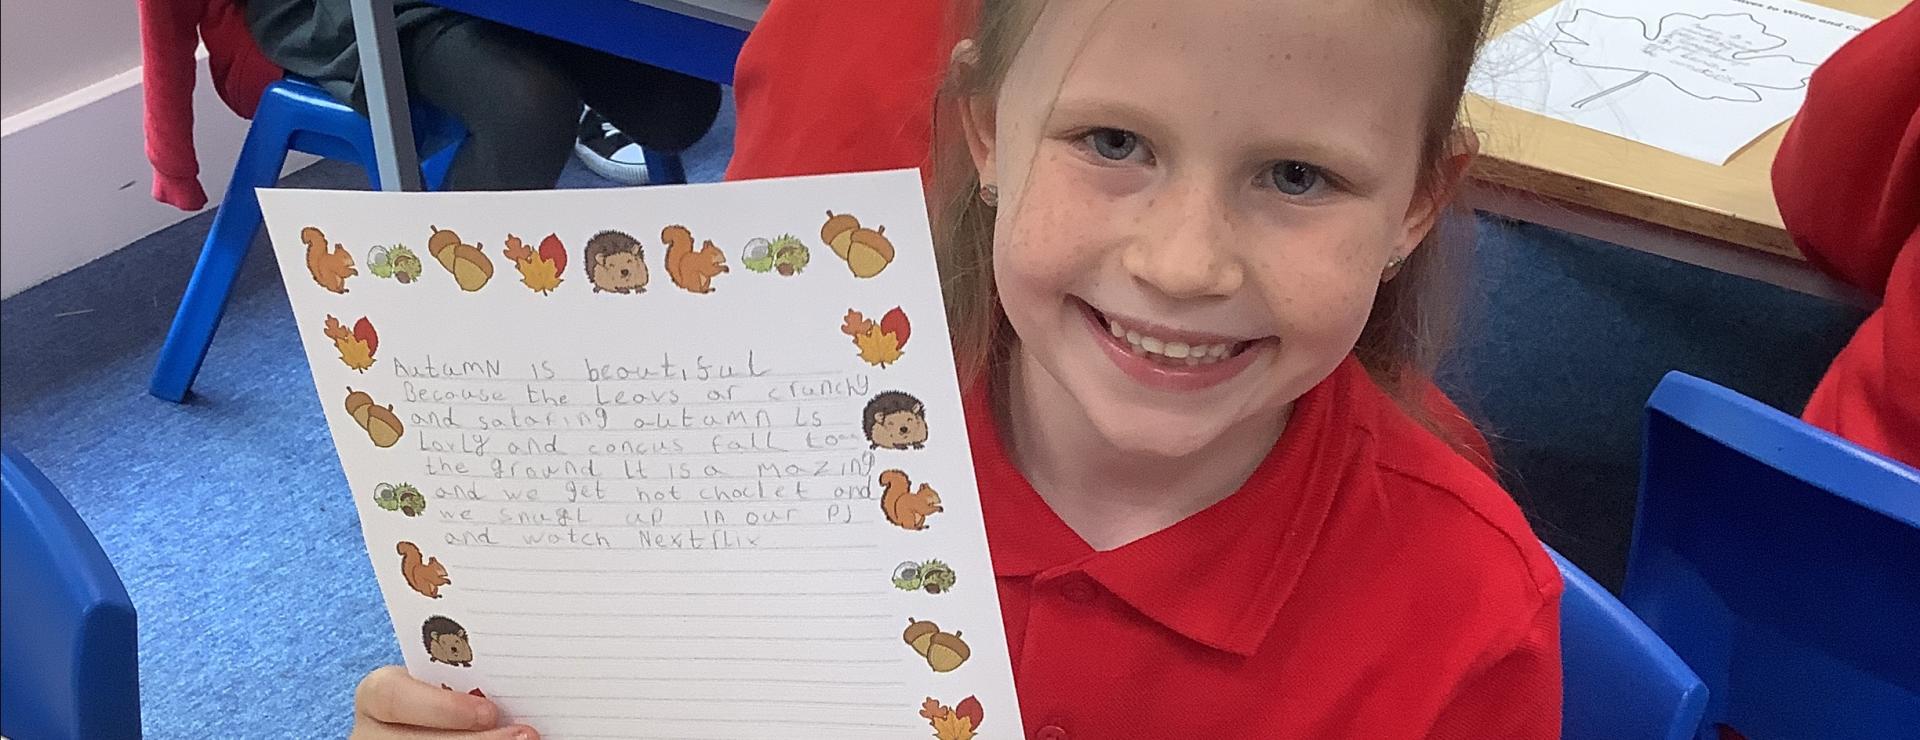 Leaves to Write and Co
Autumn is beautiful
Because the Leavs ar crunchy
and satafing autumn is
Lovly and concus fall to
the ground It is a mazing
and we get hot choclet and
we snugl up in our PJ
and watch Nextflix